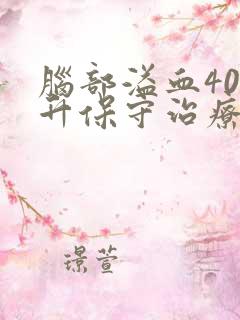 腦部溢血40
升保守治療
璟萱